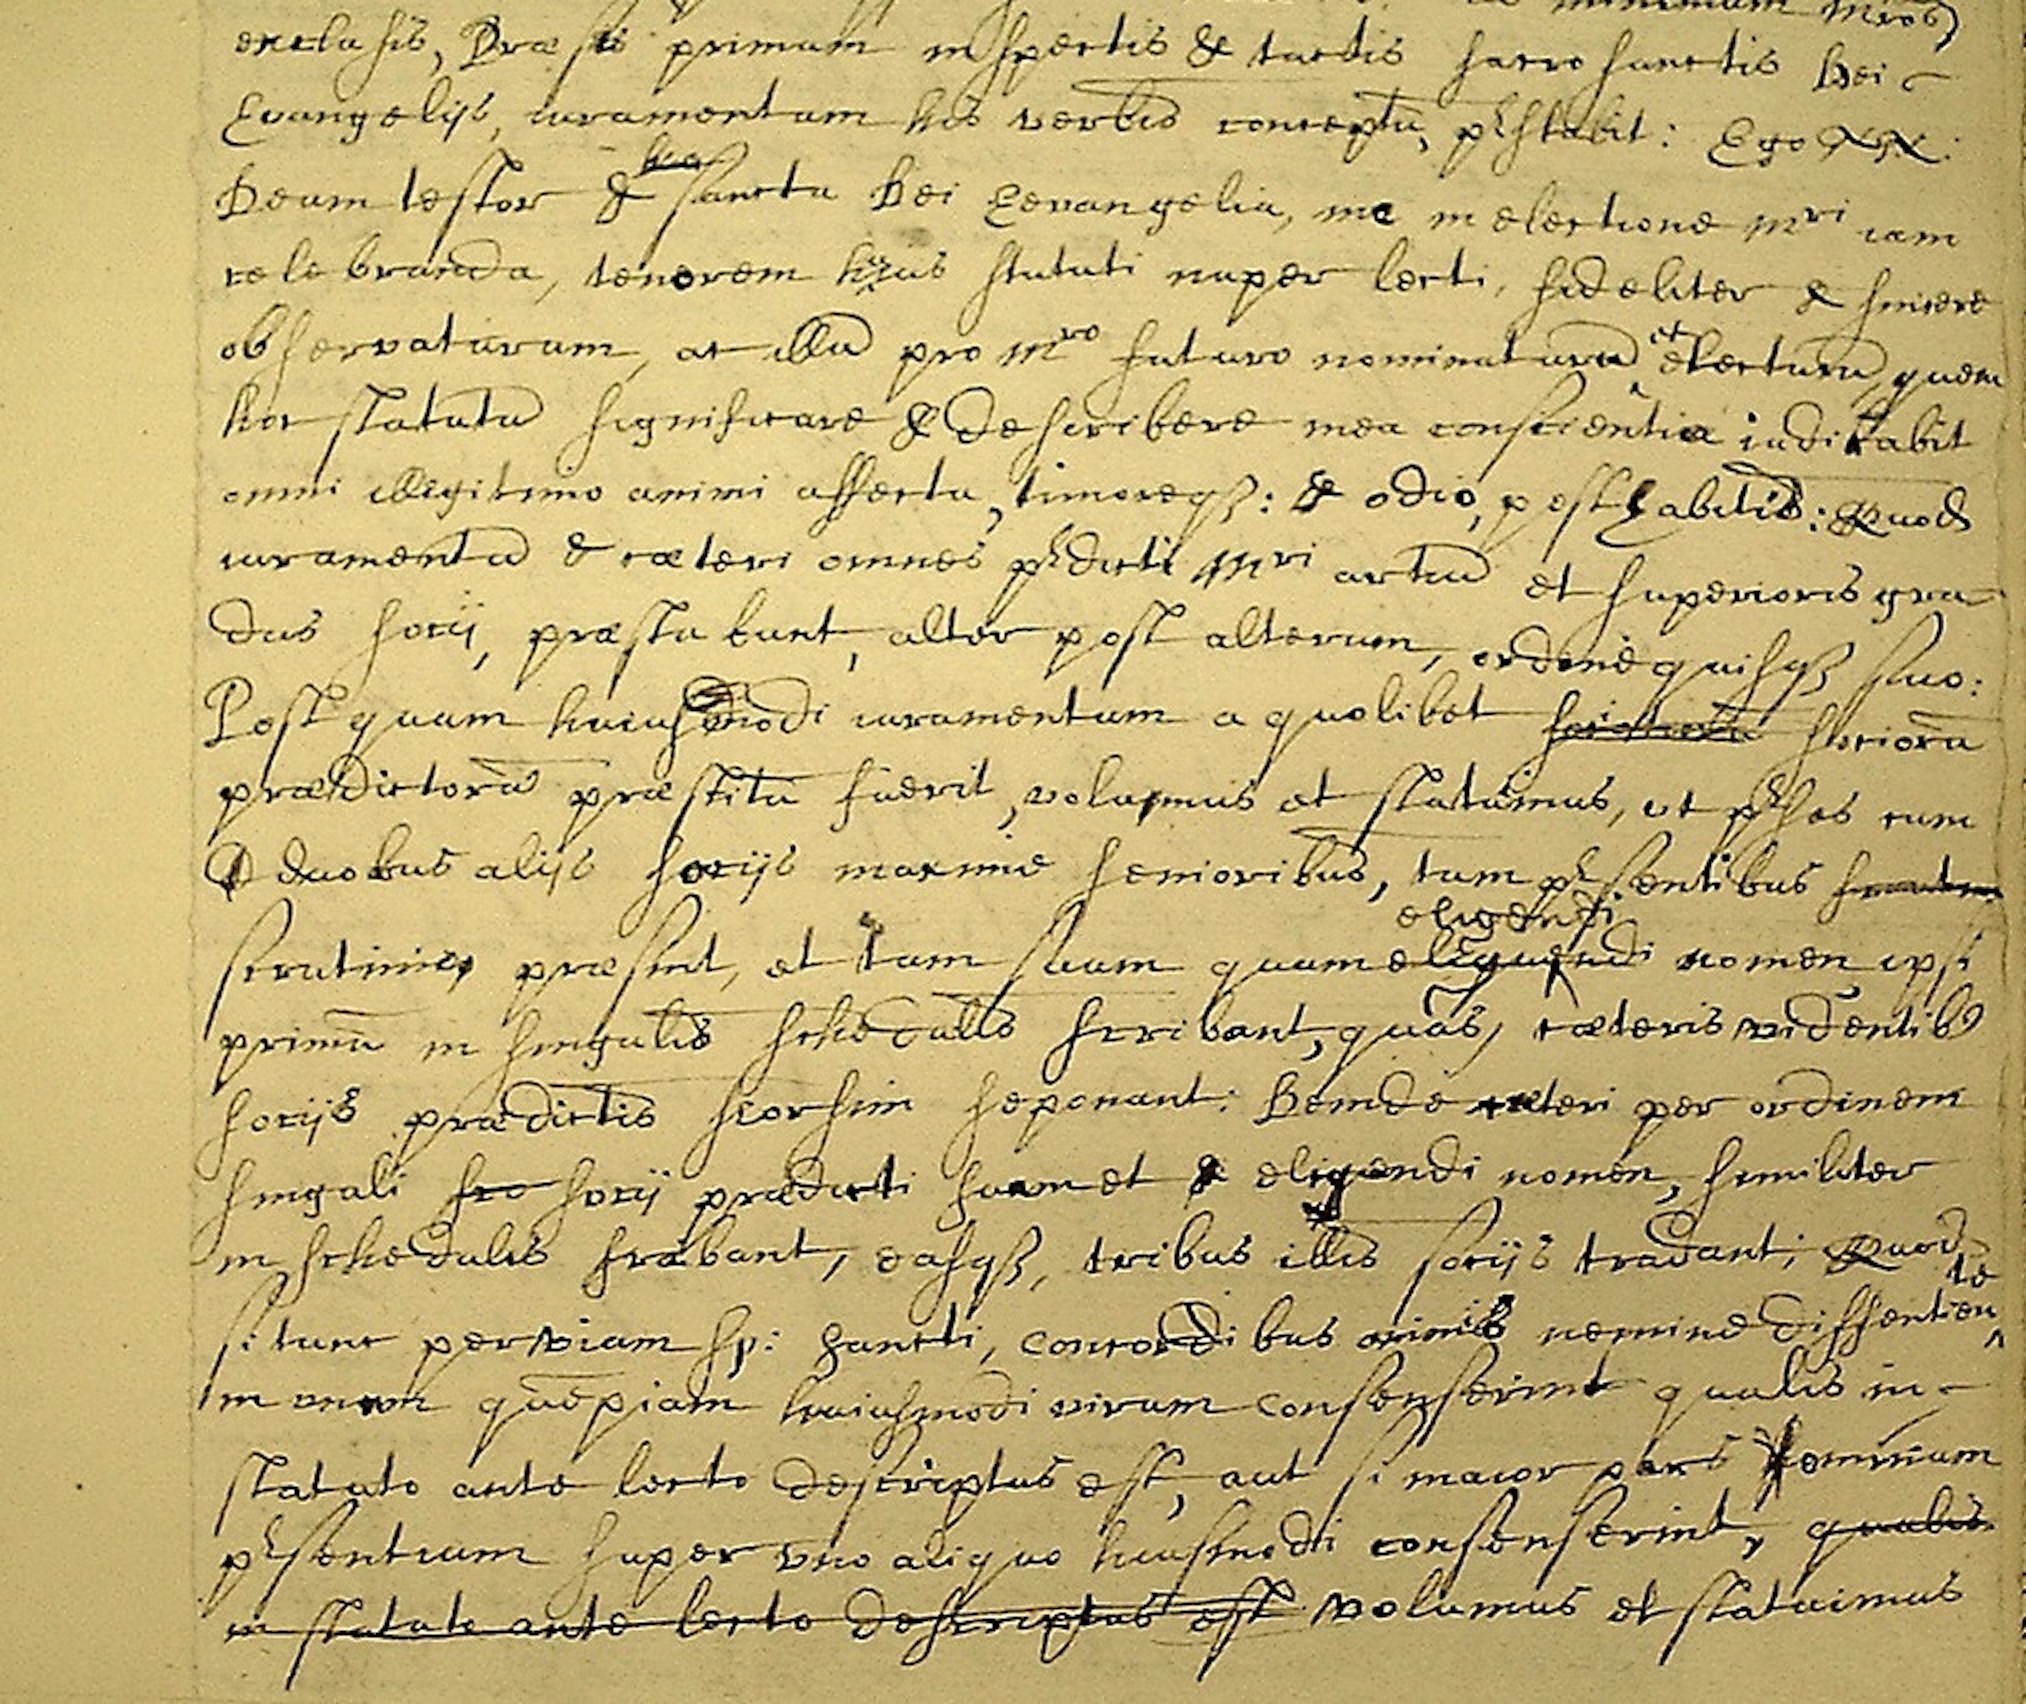 minimum m̄ros
exclusis, Præses primum inspectis & tactis sacro sanctis Dei
Evangelijs, iuramentum his verbis conceptū, p̄stabit: Ego N.N.
Deum testor & hæc sancta Dei Eevangelia, me in electione mri iam
celebranda, tenorem huius statuti nuper lecti, fideliter & sincere
observaturum, ac illū pro mro futuro nominaturū et electurū, quem
hoc statutū significare & describere mea conscientia iudicabit
omni illegitimo animi affectu, timoreqȝ: & odio, posthabitis: Quod
iuramentū & cæteri omnes p̄dicti mri artiū et superioris gra
dus socij, præstabunt, alter post alterum, ordine quisqȝ suo:
Postquam huiusmodi iuramentum a quolibet sociorū
prædictorū præstitū fuerit, volumus et statuimus, ut p̄ses cum
duobus alijs socijs maxime senioribus, tum p̄sentibus
scrutinio præsint, et tam suum quam eligendi eligendi nomen ipsi
primū in singulis schedulis scribant, quas, cæteris videntibꝰ
socijs prædictis seorsim seponant: Deinde cæteri per ordinem
singuli sco socij prædicti suum et & eligendi nomen, similiter
in schedulis scribant, easqȝ, tribus illis socijs tradant; Quod
si tunc per viam sp: sancti, concordibus animis nemine dissentiente
in unum quēpiam huiusmodi virum consenserint qualis in
statuto ante lecto descriptus est, aut si maior pars hominum
p̄sentium super uno aliquo huiusmodi consenserint, qualis
in statuto ante lecto descriptus est volumus et statuimus